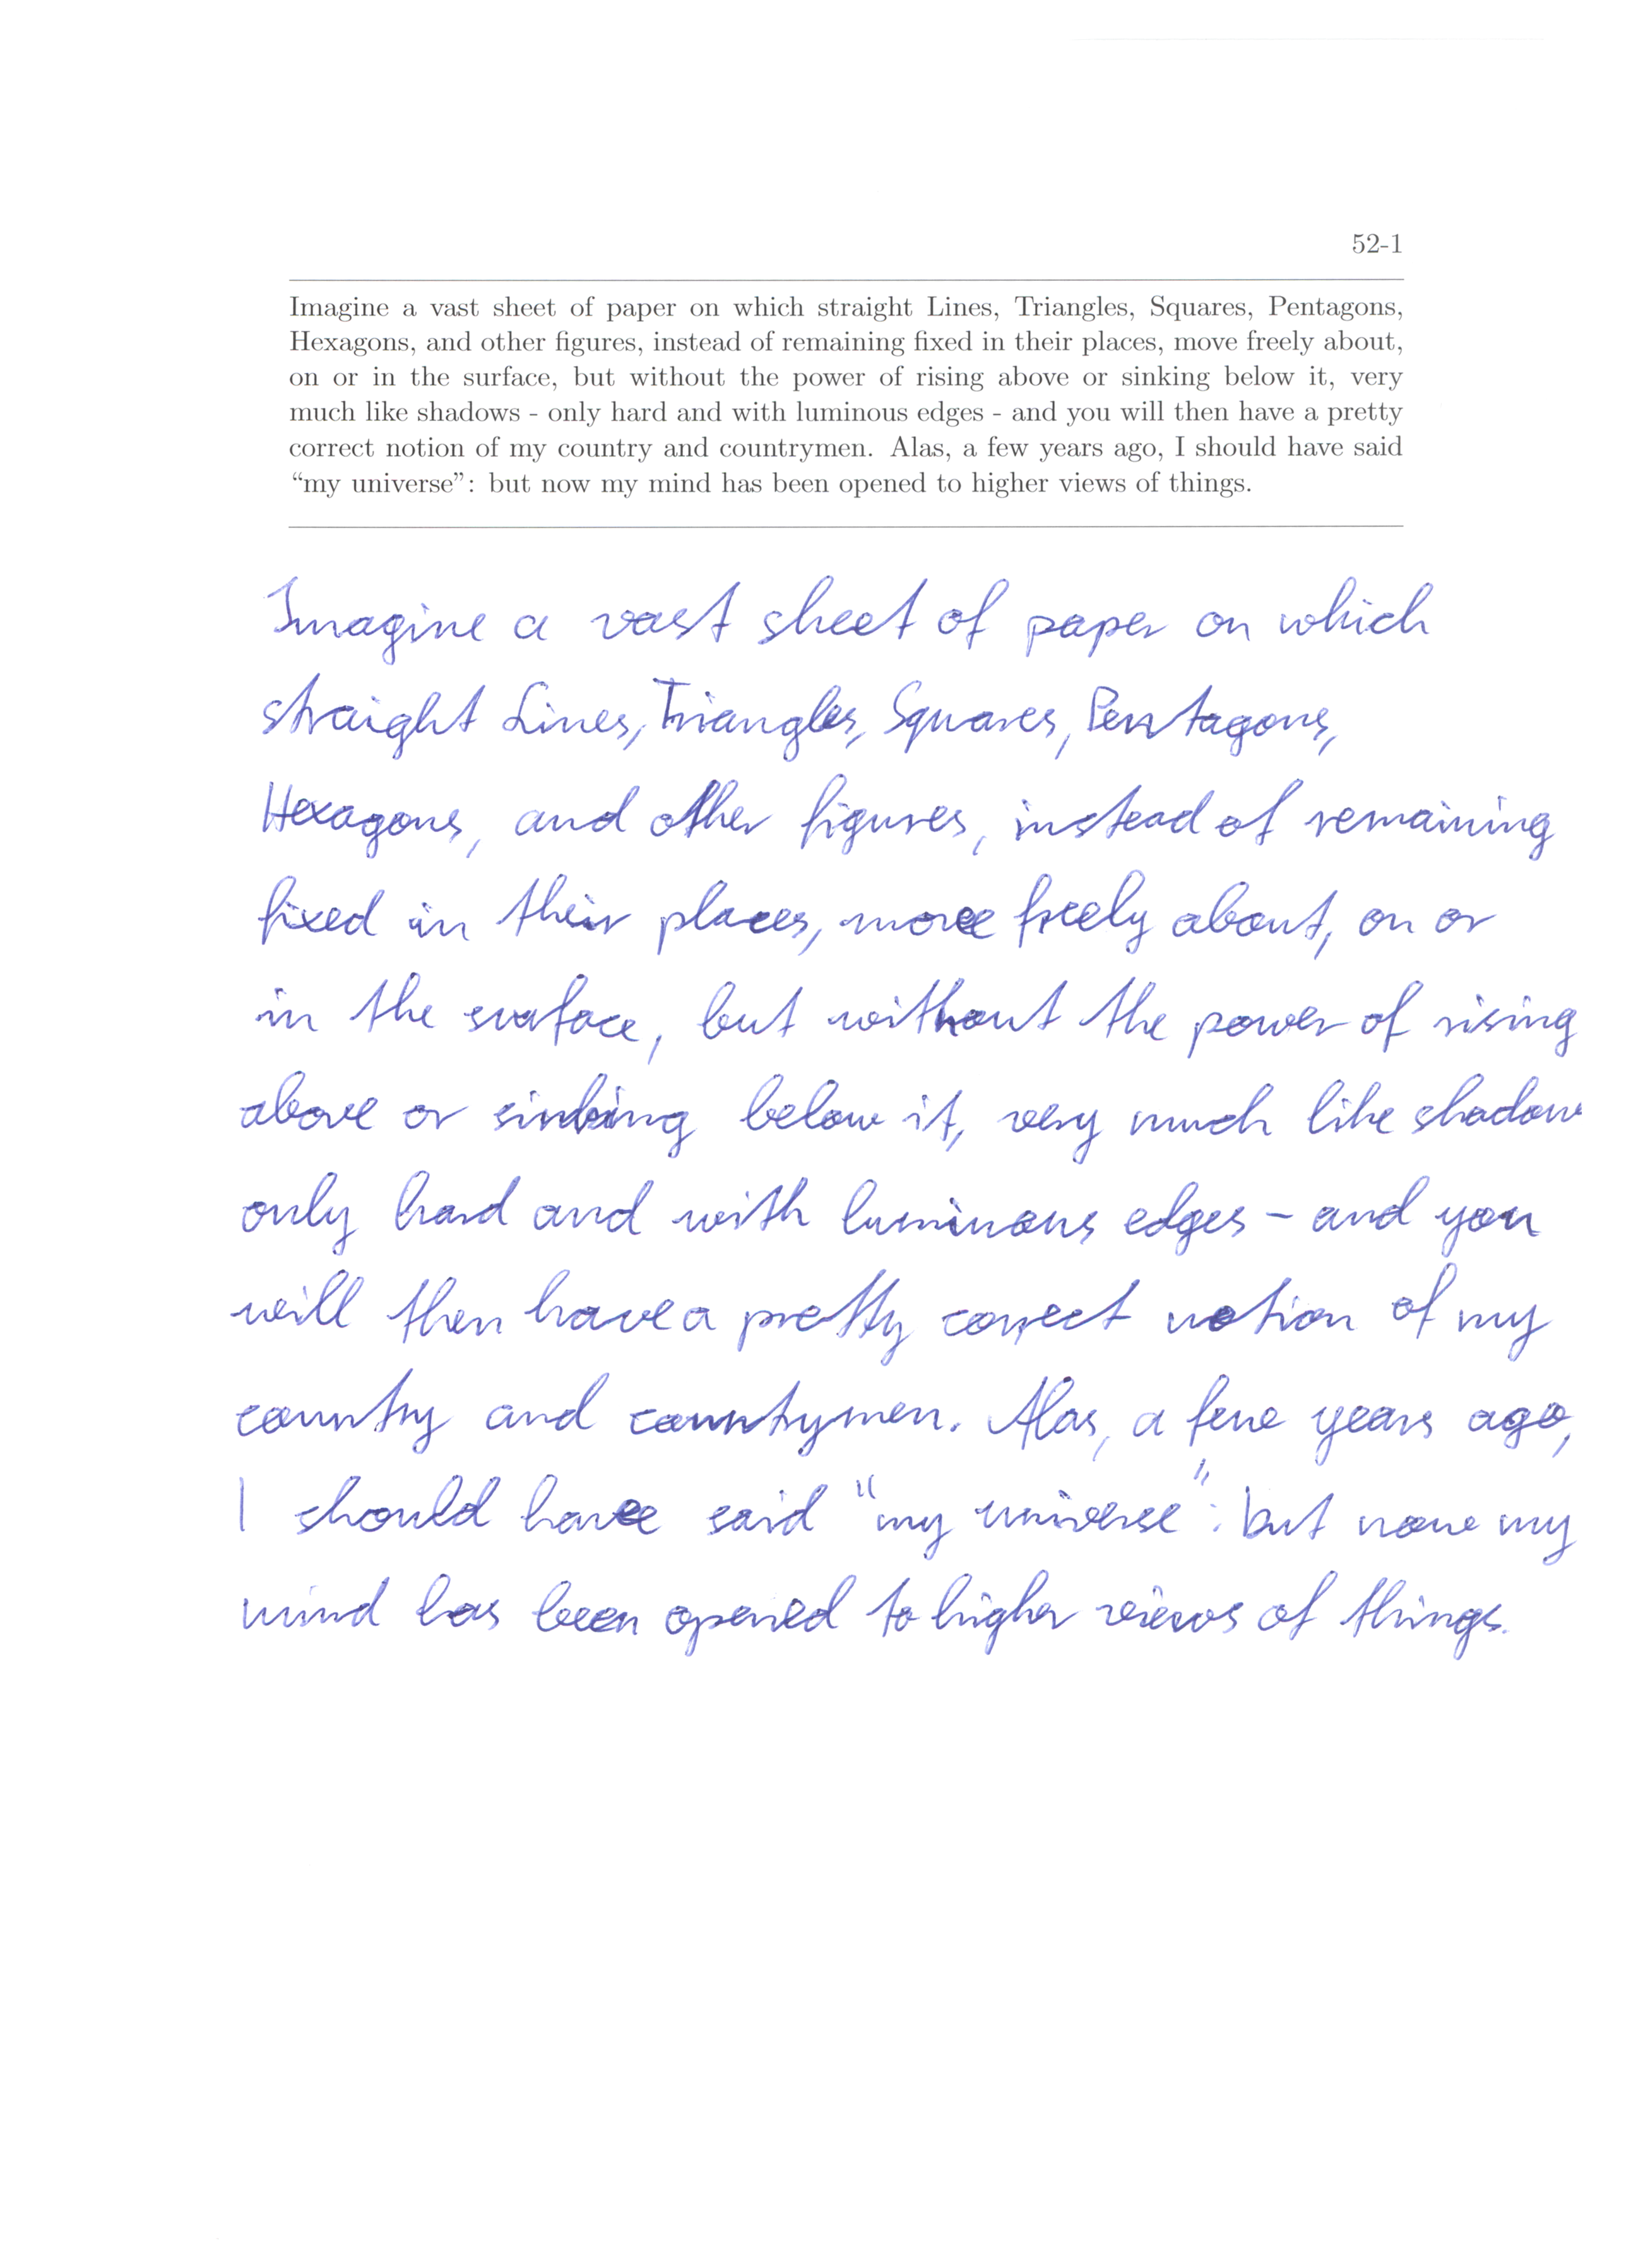 52-1
Imagine a vast sheet of paper on which straight Lines, Triangles, Squares, Pentagons,
Hexagons, and other figures, instead of remaining fixed in their places, move freely about,
on or in the surface, but without the power of rising above or sinking below it, very
much like shadows - only hard and with luminous edges - and you will then have a pretty
correct notion of my country and countrymen. Alas, a few years ago, I should have said
“my universe”: but now my mind has been opened to higher views of things.
Imagine a vast sheet of paper on which
straight Lines, Triangles, Squares, Pentagons,
Hexagons, and other figures, instead of remaining
fixed in their places, move freely about, on or
in the surface, but without the power of rising
above or sinking below it, very much like shadow
only hard and with luminous edges - and you
will then have a pretty correct notion of my
country and countrymen. Alas, a few years ago,
I should have said "my universe": but now my
mind has been opened to higher views of things.